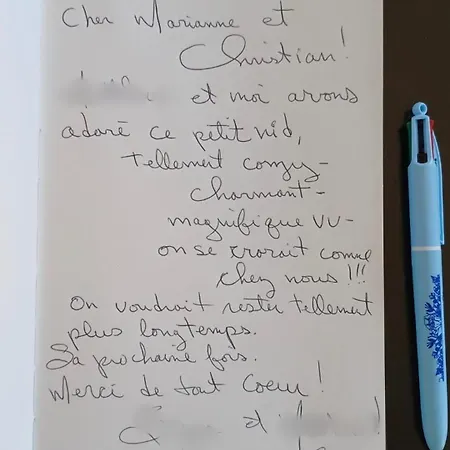 Cher Marianne et
Christian!
et moi avons
adoré ce petit nid,
tellement comzy-
charmant-
magnifique vu-
on se crorait comme
chez nous!!!
On voudrait rester tellement
plus longtemps.
La prochaine fois.
Merci de tout Coeur!
et